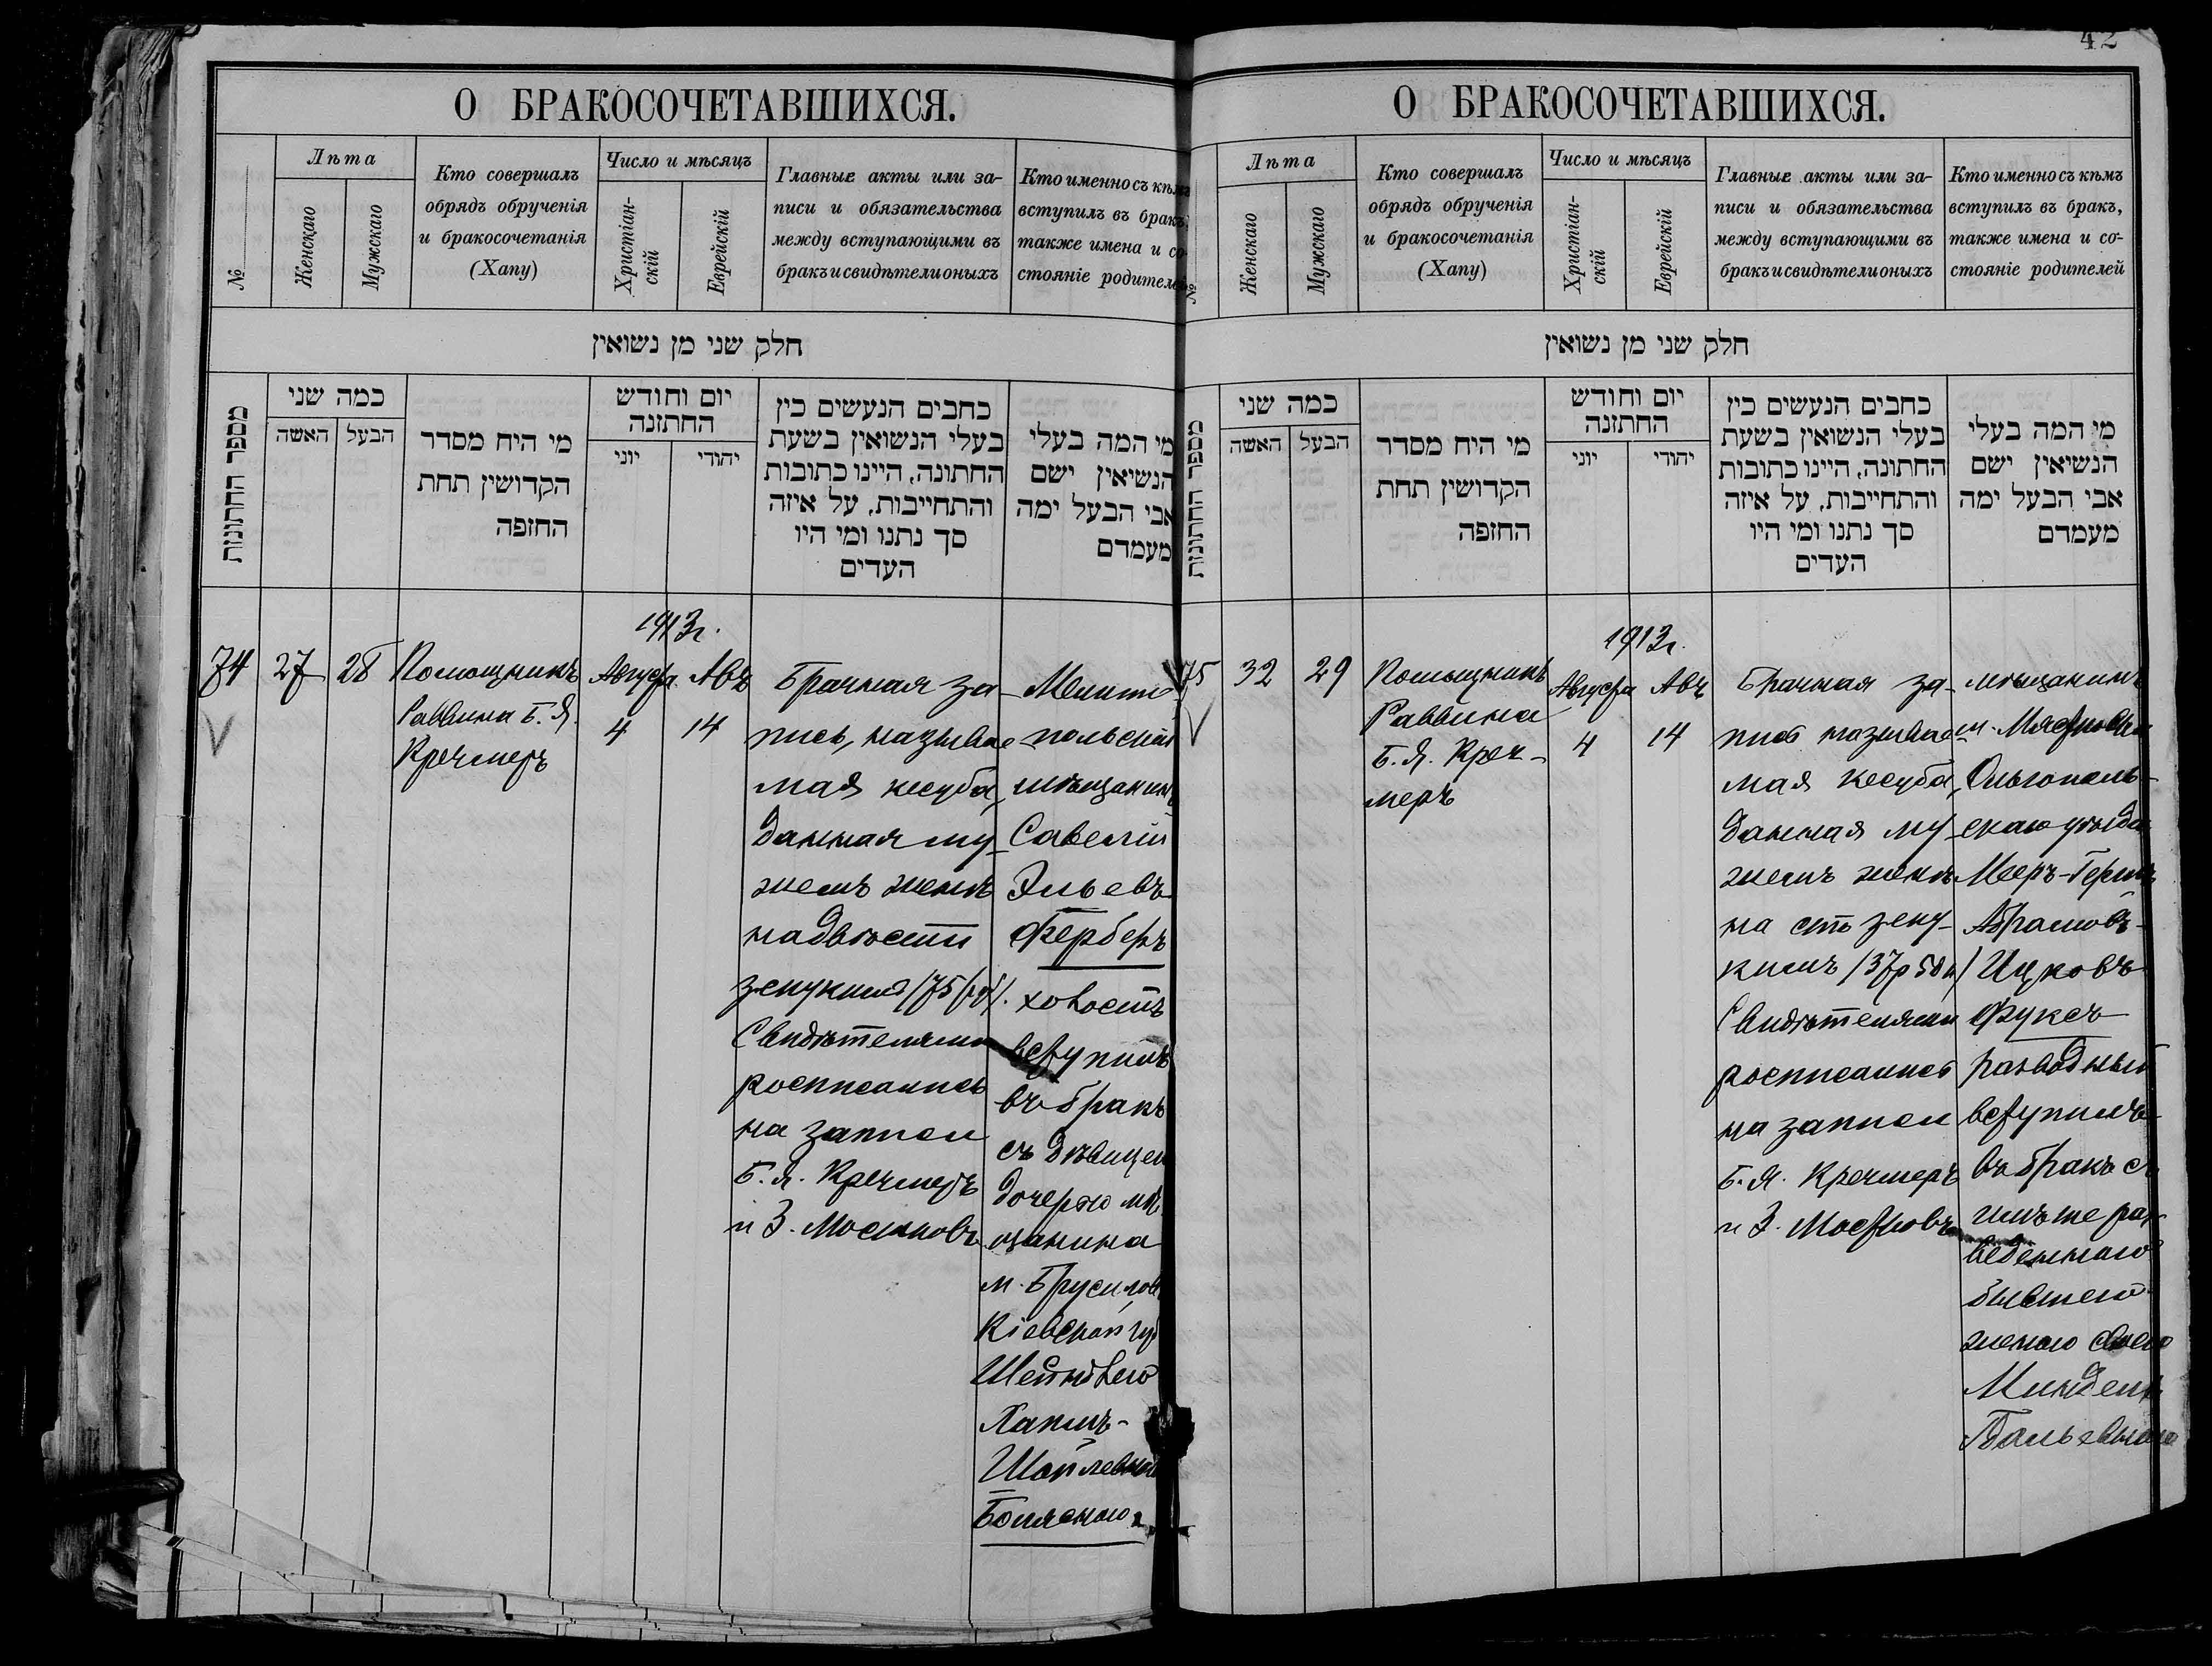 42
О БРАКОСОЧЕТАВШИХСЯ.
№
Лѣта
Женскаго
Мужскаго
Кто совершалъ
обрядъ обрученія
и бракосочетанія
(Хапу)
Число и мѣсяцъ
Христіан-
скій
Еврейскій
Главные акты или за-
писи и обязательства
между вступающими въ
бракъ и свидѣтели оныхъ
Кто именно съ кѣмъ
вступилъ въ бракъ,
также имена и со-
стояніе родителей
חלק שני מן נשואין
מספר החתונות
כמה שני
האשה
הבעל
מי היח מסדר
הקדושין תחת
החזפה
יום וחודש
החתזנה
יוני
יהודי
כחבים הנעשים כין
בעלי הנשואין בשעת
החתונה, היינו כתובות
והתחייבות, על איזה
סך נתנו ומי היו
העדים
מי המה בעלי
הנשיאין ישם
אבי הבעל ימה
מעמדם
1913г.
74
27
28
Помощникъ
Раввина Б. Я.
Кречмеръ
Августа
4
Авъ
14
Брачная за-
пись, называе-
мая кесуба,
данная му-
жемъ женѣ
на двѣсти
зекукимъ (75 руб).
Свидѣтелями
росписались
на записи
Б. Я. Кречмеръ
и З. Мостковъ
Мелито-
польскій
мѣщанинъ
Савелій
Эльевъ
Ферберъ
холостъ
вступилъ
въ бракъ
съ дѣвицею
дочерью мѣ-
щанина
м. Брусилов
Кіевской губ
Шейндлею
Хапиъ-
Шойлевною
Боярскою
О БРАКОСОЧЕТАВШИХСЯ.
№
Лѣта
Женскаго
Мужскаго
Кто совершалъ
обрядъ обрученія
и бракосочетанія
(Хапу)
Число и мѣсяцъ
Христіан-
скій
Еврейскій
Главные акты или за-
писи и обязательства
между вступающими въ
бракъ и свидѣтели оныхъ
Кто именно съ кѣмъ
вступилъ въ бракъ,
также имена и со-
стояніе родителей
חלק שני מן נשואין
מספר החתונות
כמה שני
האשה
הבעל
מי היח מסדר
הקדושין תחת
החזפה
יום וחודש
החתזנה
יוני
יהודי
כחבים הנעשים כין
בעלי הנשואין בשעת
החתונה, היינו כתובות
והתחייבות, על איזה
סך נתנו ומי היו
העדים
מי המה בעלי
הנשיאין ישם
אבי הבעל ימה
מעמדם
1913г.
75
32
29
Помощникъ
Раввина
Б. Я. Креч-
меръ
Августа
4
Авъ
14
Брачная за-
пись называе-
мая кесуба,
данная му-
жемъ женѣ
на сто зеку-
кимъ (37р 50к)
Свидѣтелями
росписались
на записи
Б. Я. Кречмеръ
и З. Мостковъ
мѣщанинъ
м. Мястковки
Ольгополь-
скаго уѣзда
Мееръ-Гершъ
Абрамовъ-
Ицковъ
Фуксъ
разводный
вступилъ
въ бракъ съ
имъ же раз-
веденною
бывшею
женою своею
Миндель